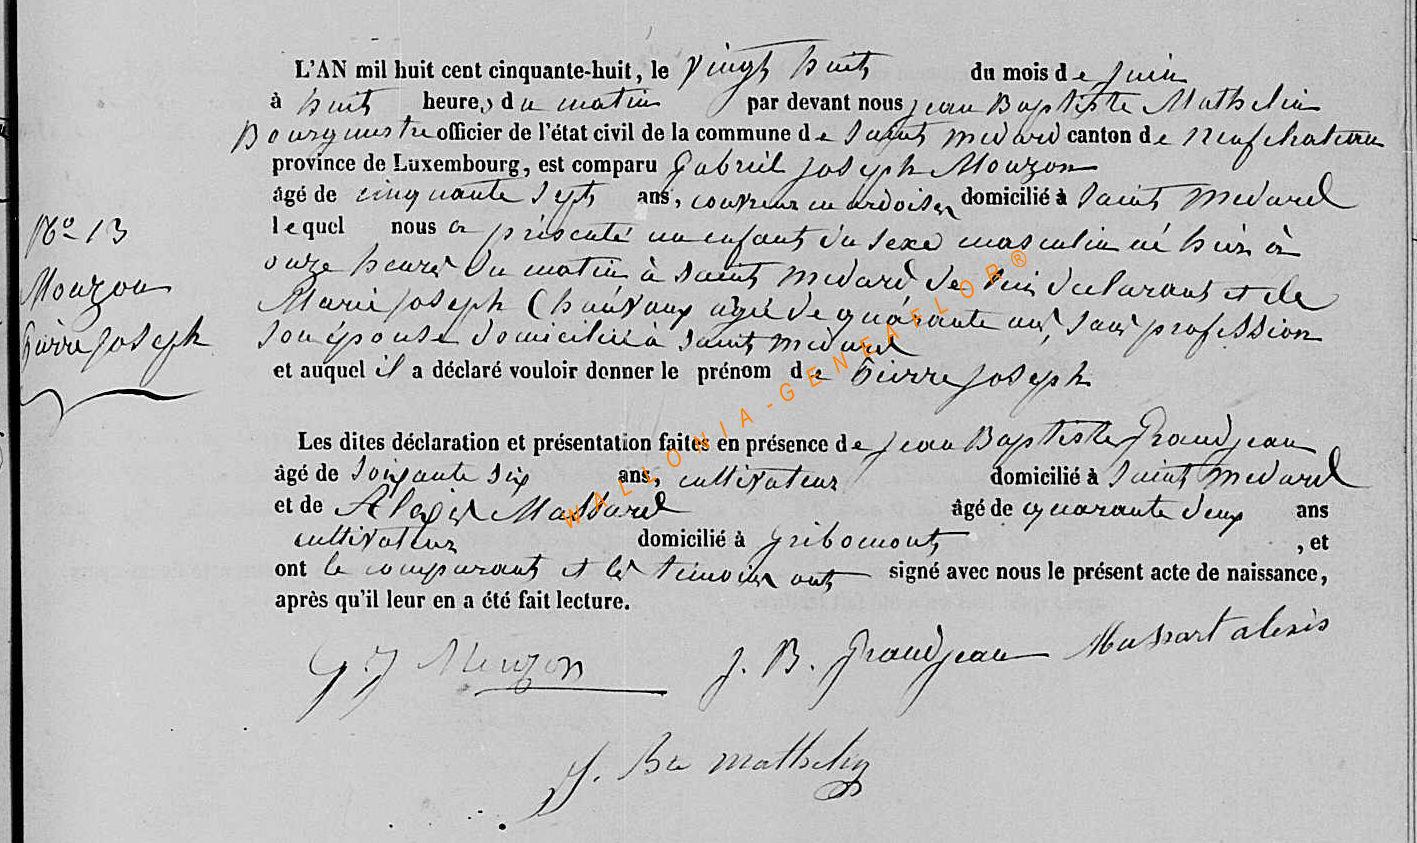 L'AN mil huit cent cinquante-huit, le vingt huit du mois de juin
à huit heures du matin par devant nous jean Baptiste Mathelin
Bourgmestre officier de l'état civil de la commune de Saint medard canton de neufchateau
province de Luxembourg, est comparu Gabriel joseph Mouzon
âgé de cinquante sept ans, couvreur en ardoises domicilié à Saint medard
lequel nous a présenté un enfant du sexe masculin né hier à
onze heures du matin à Saint medard de lui déclarant et de
Marie joseph agée de quarante ans, sans profession
son épouse domiciliée à Saint medard
et auquel il a déclaré vouloir donner le prénom de Pierre joseph
No 13
Mouzon
Pierre joseph
Les dites déclaration et présentation faites en présence de jean Baptiste Grandjean
âgé de soixante six ans, cultivateur domicilié à Saint medard
et de Alexis Massard âgé de quarante deux ans
cultivateur domicilié à gribomont, et
ont le comparant et les témoins ont signé avec nous le présent acte de naissance,
après qu'il leur en a été fait lecture.
G J Mouzon J. B. Grandjean Massart alexis
J. Bte mathelin
WALLONIA-GENEAFLOR®